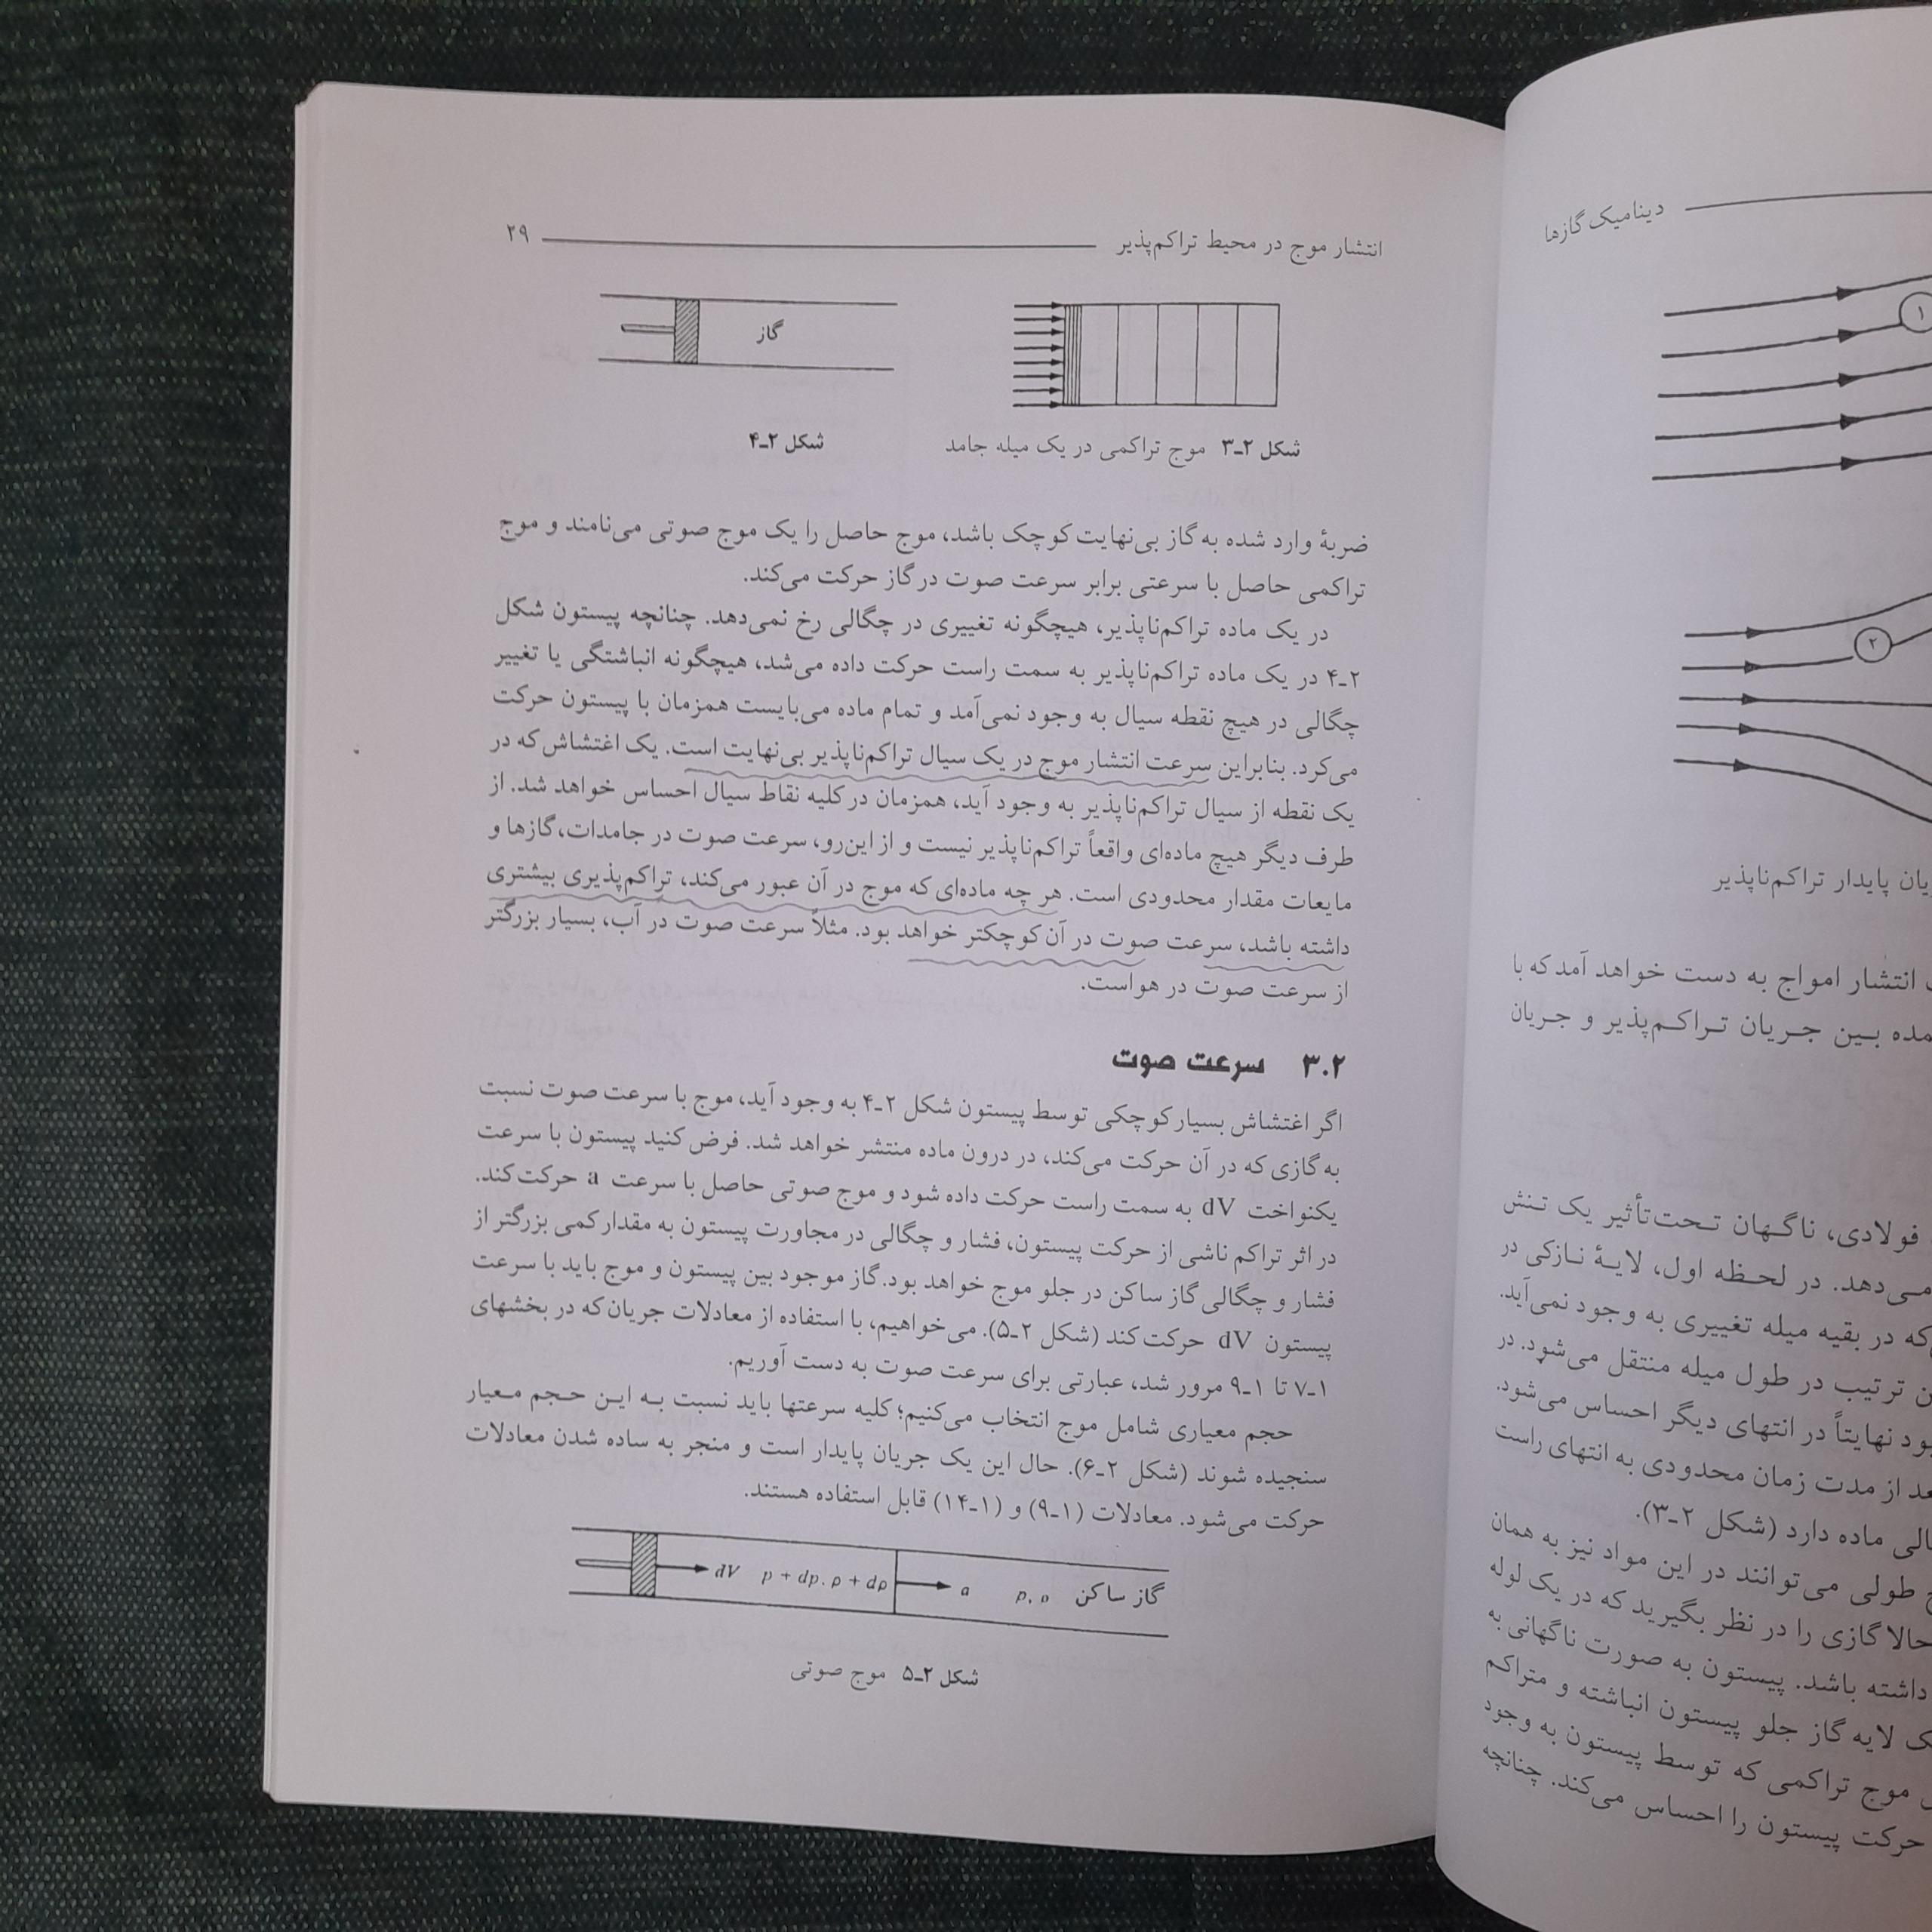 انتشار موج در محیط تراکم‌پذیر ۲۹
گاز
شکل ۲-۳ موج تراکمی در یک میله جامد
شکل ۲-۴
ضربهٔ وارد شده به گاز بی‌نهایت کوچک باشد، موج حاصل را یک موج صوتی می‌نامند و موج
تراکمی حاصل با سرعتی برابر سرعت صوت در گاز حرکت می‌کند.
در یک ماده تراکم‌ناپذیر، هیچگونه تغییری در چگالی رخ نمی‌دهد. چنانچه پیستون شکل
۲-۴ در یک ماده تراکم‌ناپذیر به سمت راست حرکت داده می‌شد، هیچگونه انباشتگی یا تغییر
چگالی در هیچ نقطه سیال به وجود نمی‌آمد و تمام ماده می‌بایست همزمان با پیستون حرکت
می‌کرد. بنابراین سرعت انتشار موج در یک سیال تراکم‌ناپذیر بی‌نهایت است. یک اغتشاش که در
یک نقطه از سیال تراکم‌ناپذیر به وجود آید، همزمان در کلیه نقاط سیال احساس خواهد شد. از
طرف دیگر هیچ ماده‌ای واقعاً تراکم‌ناپذیر نیست و از این‌رو، سرعت صوت در جامدات، گازها و
مایعات مقدار محدودی است. هر چه ماده‌ای که موج در آن عبور می‌کند، تراکم‌پذیری بیشتری
داشته باشد، سرعت صوت در آن کوچکتر خواهد بود. مثلاً سرعت صوت در آب، بسیار بزرگتر
از سرعت صوت در هواست.
۳.۲ سرعت صوت
اگر اغتشاش بسیار کوچکی توسط پیستون شکل ۲-۴ به وجود آید، موج با سرعت صوت نسبت
به گازی که در آن حرکت می‌کند، در درون ماده منتشر خواهد شد. فرض کنید پیستون با سرعت
یکنواخت dV به سمت راست حرکت داده شود و موج صوتی حاصل با سرعت a حرکت کند.
در اثر تراکم ناشی از حرکت پیستون، فشار و چگالی در مجاورت پیستون به مقدار کمی بزرگتر از
فشار و چگالی گاز ساکن در جلو موج خواهد بود. گاز موجود بین پیستون و موج باید با سرعت
پیستون dV حرکت کند (شکل ۲-۵). می‌خواهیم، با استفاده از معادلات جریان که در بخشهای
۱-۷ تا ۱-۹ مرور شد، عبارتی برای سرعت صوت به دست آوریم.
حجم معیاری شامل موج انتخاب می‌کنیم؛ کلیه سرعتها باید نسبت به این حجم معیار
سنجیده شوند (شکل ۲-۶). حال این یک جریان پایدار است و منجر به ساده شدن معادلات
حرکت می‌شود. معادلات (۱-۹) و (۱-۱۴) قابل استفاده هستند.
dV p + dp, ρ + dρ a p, ρ گاز ساکن
شکل ۲-۵ موج صوتی
دینامیک گازها
۱
۲
پایدار تراکم‌ناپذیر
انتشار امواج به دست خواهد آمد که با
بین جریان تراکم‌پذیر و جریان
فولادی، ناگهان تحت‌تأثیر یک تنش
می‌دهد. در لحظه اول، لایهٔ نازکی در
که در بقیه میله تغییری به وجود نمی‌آید.
ترتیب در طول میله منتقل می‌شود. در
نهایتاً در انتهای دیگر احساس می‌شود.
از مدت زمان محدودی به انتهای راست
ماده دارد (شکل ۲-۳).
طولی می‌توانند در این مواد نیز به همان
حالا گازی را در نظر بگیرید که در یک لوله
داشته باشد. پیستون به صورت ناگهانی به
لایه گاز جلو پیستون انباشته و متراکم
موج تراکمی که توسط پیستون به وجود
حرکت پیستون را احساس می‌کند. چنانچه